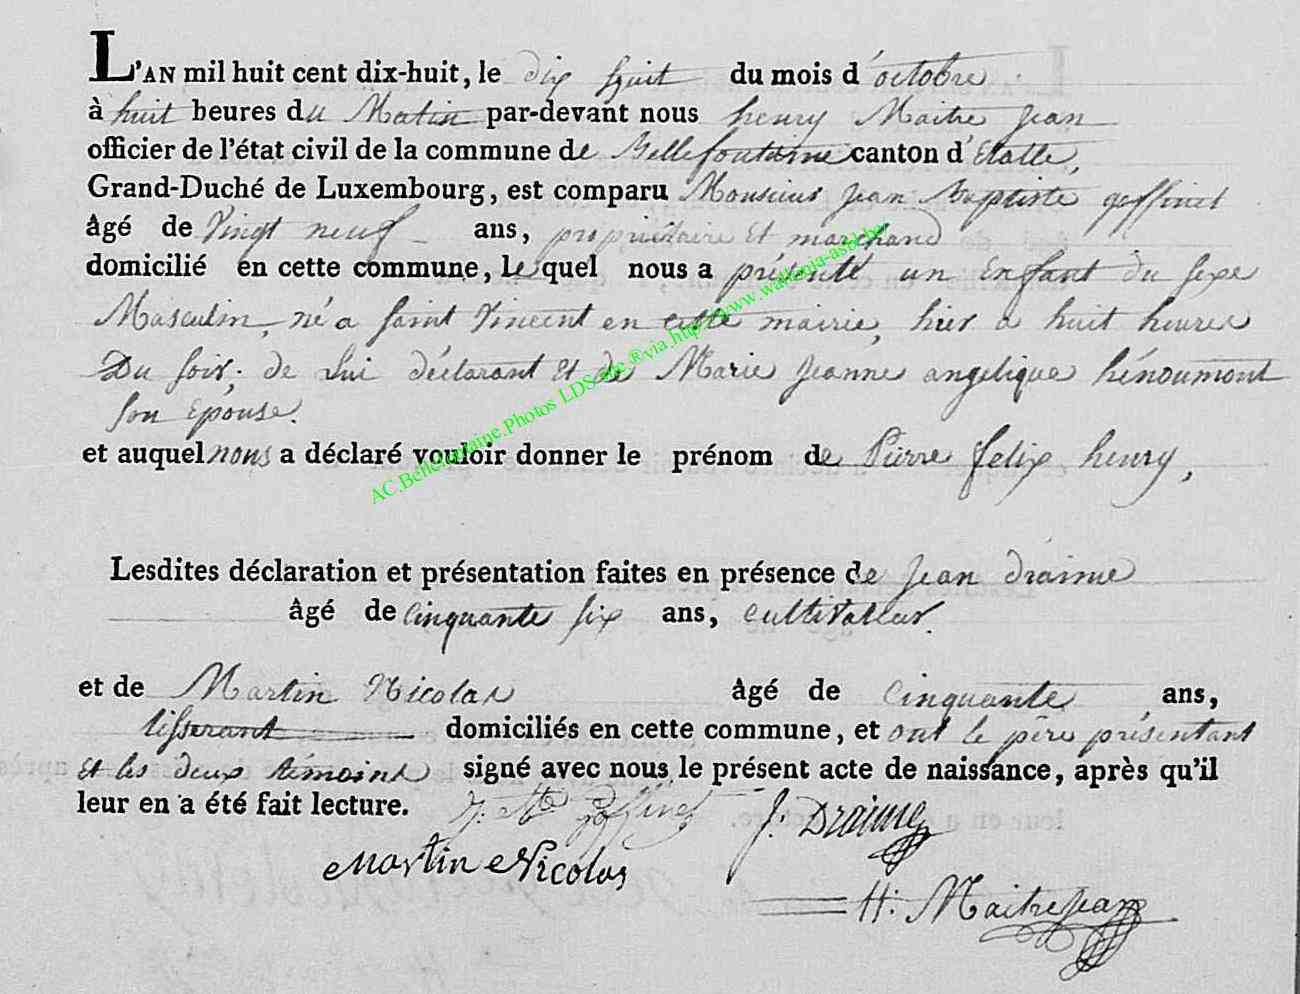 L'AN mil huit cent dix-huit, le dix huit du mois d'octobre
à huit heures du Matin par-devant nous henry Maitre Jean
officier de l'état civil de la commune de Bellefontaine canton d'Etalle,
Grand-Duché de Luxembourg, est comparu Monsieur Jean Baptiste goffinet
âgé de Vingt neuf ans, propriétaire et marchand
domicilié en cette commune, lequel nous a présenté un Enfant du sexe
Masculin, né a Saint Vincent en cette mairie, hier a huit heures
Du soir, de Lui déclarant et de Marie Jeanne angelique hénoumont
son Epouse.
et auquel nous a déclaré vouloir donner le prénom de Pierre felix henry,
Lesdites déclaration et présentation faites en présence de Jean Draime
âgé de Cinquante six ans, cultivateur.
et de Martin Nicolas âgé de Cinquante ans,
tisserant domiciliés en cette commune, et ont le père présentant
et les deux témoins signé avec nous le présent acte de naissance, après qu'il
leur en a été fait lecture. J. Bte Goffinet J. Draime
Martin Nicolas
H. MaitreJean
AC.Bellefontaine.Photos LDS.inc.®via http://www.wallonia-asbl.be/